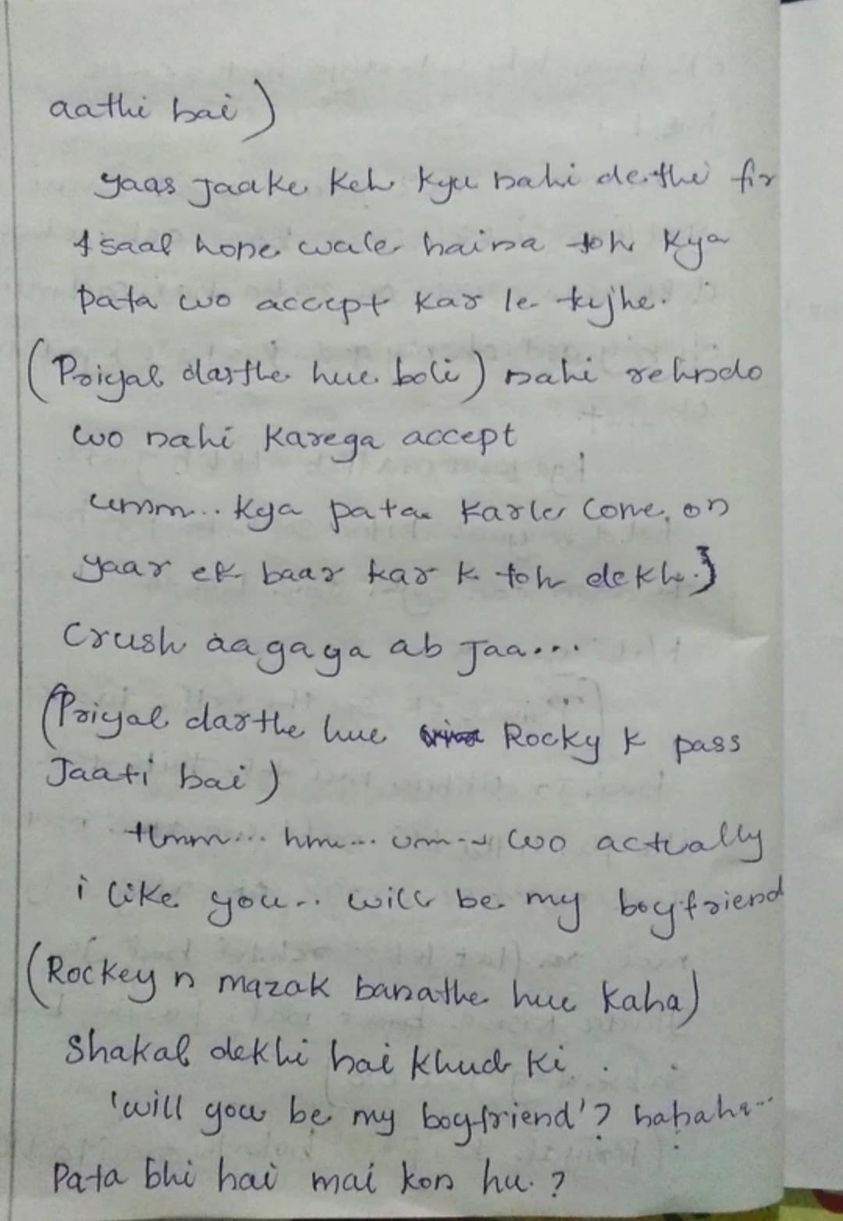 aathi hai)
yaas jaake keh kyu nahi dethi fir
1 saal hone wale haina toh kya
pata wo accept kar le tujhe.
(Priyal darthe hue boli) nahi rehndo
wo nahi karega accept
umm.. kya pata karle come on
yaar ek baar kar k toh dekh.}
Crush aagaya ab jaa...
(Priyal darthe hue Rocky k pass
Jaati hai)
Hmm... hm... um... wo actually
i like you.. will be my boyfriend
(Rockey n mazak banathe hue kaha)
Shakal dekhi hai khud ki.
'will you be my boyfriend'? hahaha...
Pata bhi hai mai kon hu.?